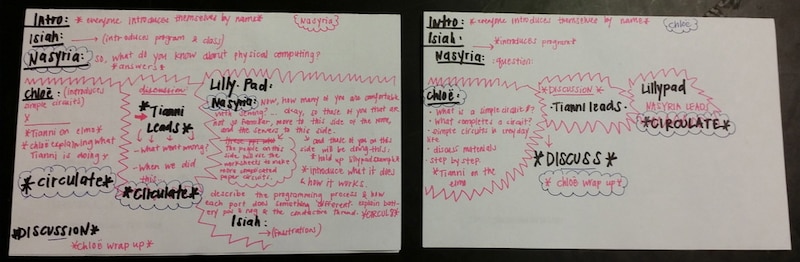 Intro: *everyone introduces themselves by name*
Nasyria
Isiah: → (introduces program & class)
Nasyria: so, what do you know about physical computing?
*answers*
Chloë: (introduces
simple circuits)
*Tianni on elmo*
*chloë explaining what
Tianni is doing*
*circulate*
discussion
*Tianni
Leads*
-What went wrong?
-When we did
this...
*Circulate*
Lilly-Pad:
Nasyria: Now, how many of you are comfortable
with sewing? ... okay, so those of you that are
not so familiar, move to this side of the room,
and the sewers to this side.
the people on this
side will use the
worksheets to make
more complicated
paper circuits.
*and those of you on this
side will be doing this:
*hold up lilypad example*
*introduce what it does
& how it works.
describe the programming process & how
each part does something different. explain batt-
ery pos & neg & the conductive thread.
Isiah:
→ (frustrations)
*DISCUSSION*
*chloë wrap up*
Intro: *everyone introduces themselves by name*
chloë
Isiah:
→ *introduces program*
Nasyria: :question:
Chloë:
• What is a simple circuit?
• What completes a circuit?
• simple circuits in everyday
life
• discuss materials
• step by step
*Tianni on the
elmo
*DISCUSSION*
Tianni leads.
*DISCUSS*
*chloë wrap up*
Lillypad
NASYRIA LEADS
*CIRCULATE*